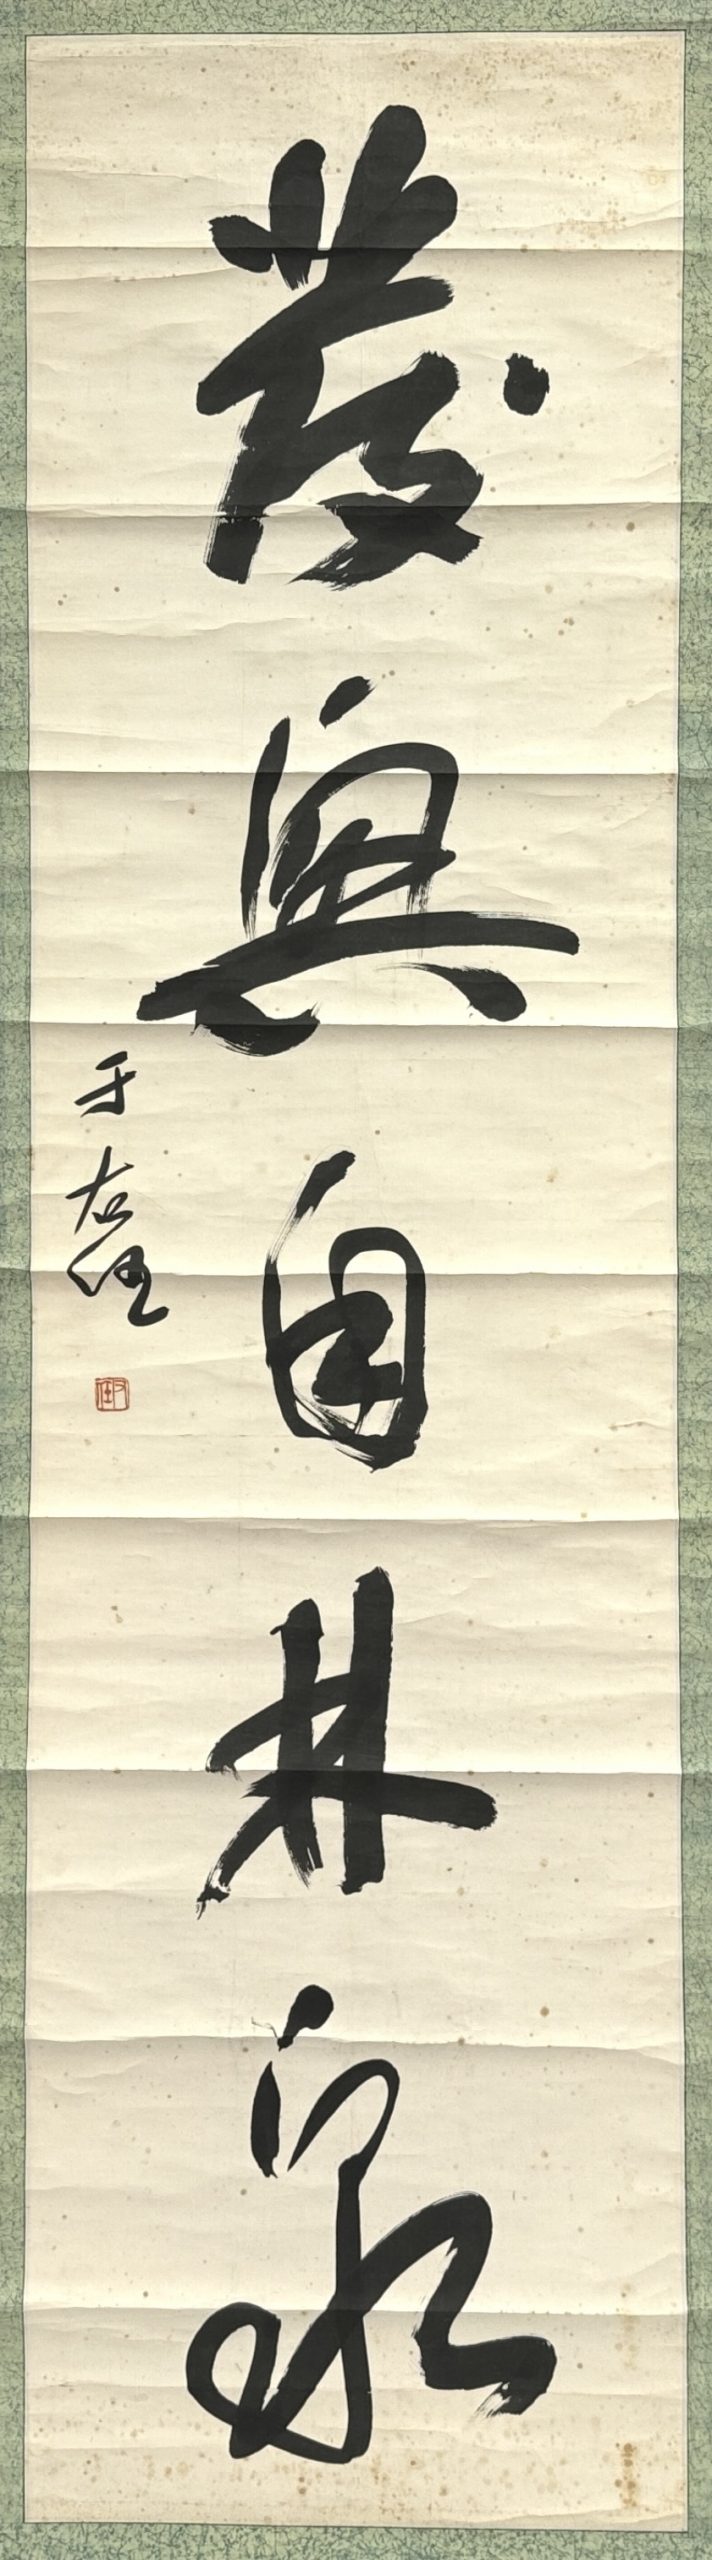 發興自林泉
于右任
右任